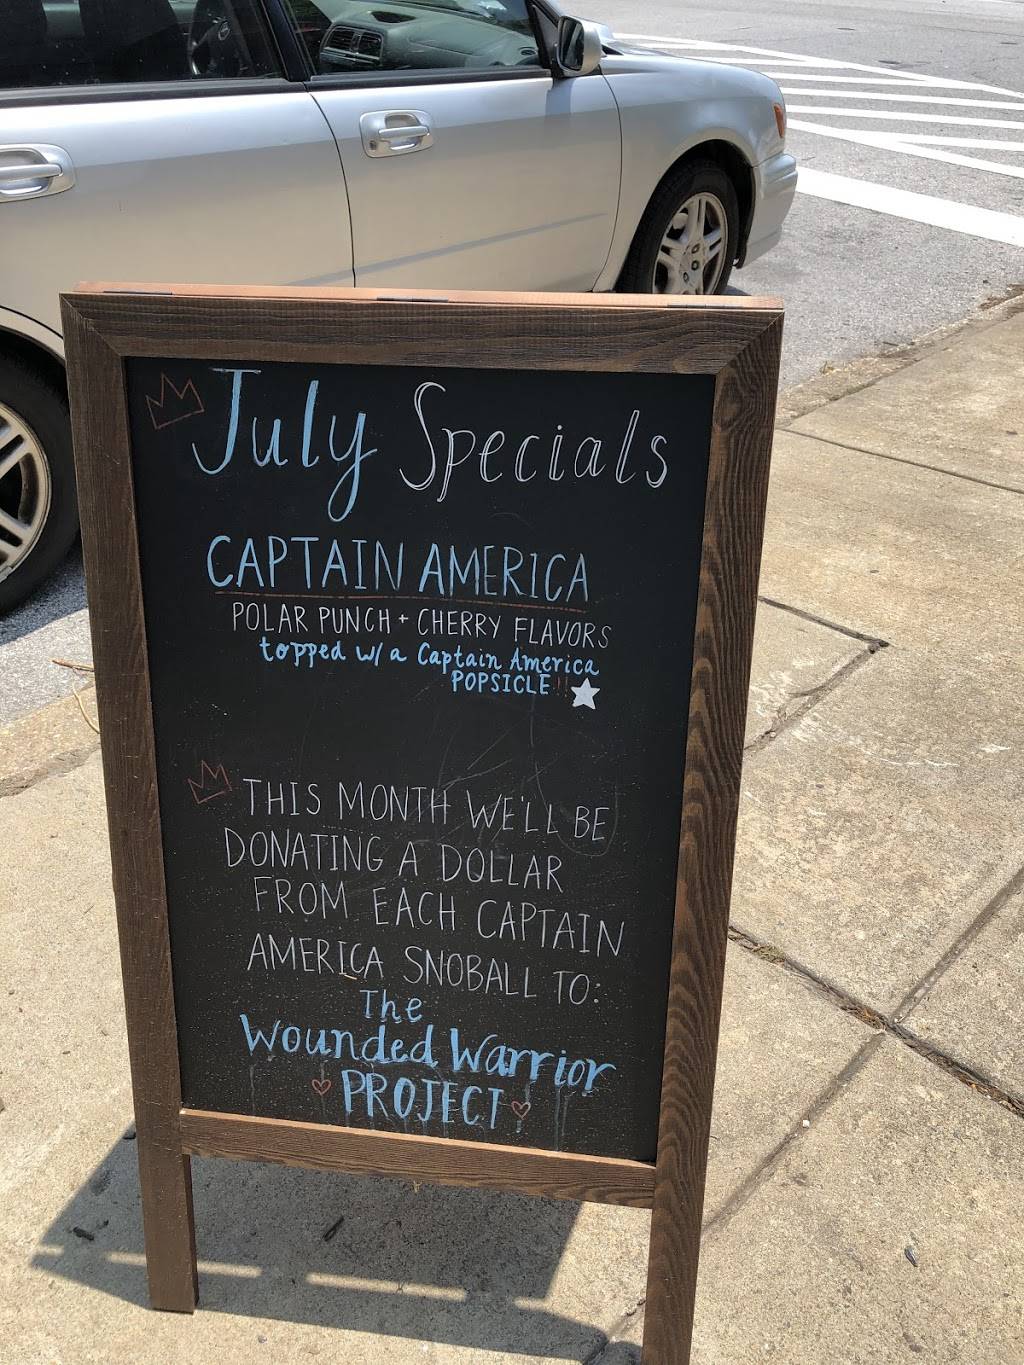 July Specials
CAPTAIN AMERICA
POLAR PUNCH + CHERRY FLAVORS
topped w/ a Captain America
POPSICLE!!
THIS MONTH WE'LL BE
DONATING A DOLLAR
FROM EACH CAPTAIN
AMERICA SNOBALL TO:
The
Wounded Warrior
PROJECT